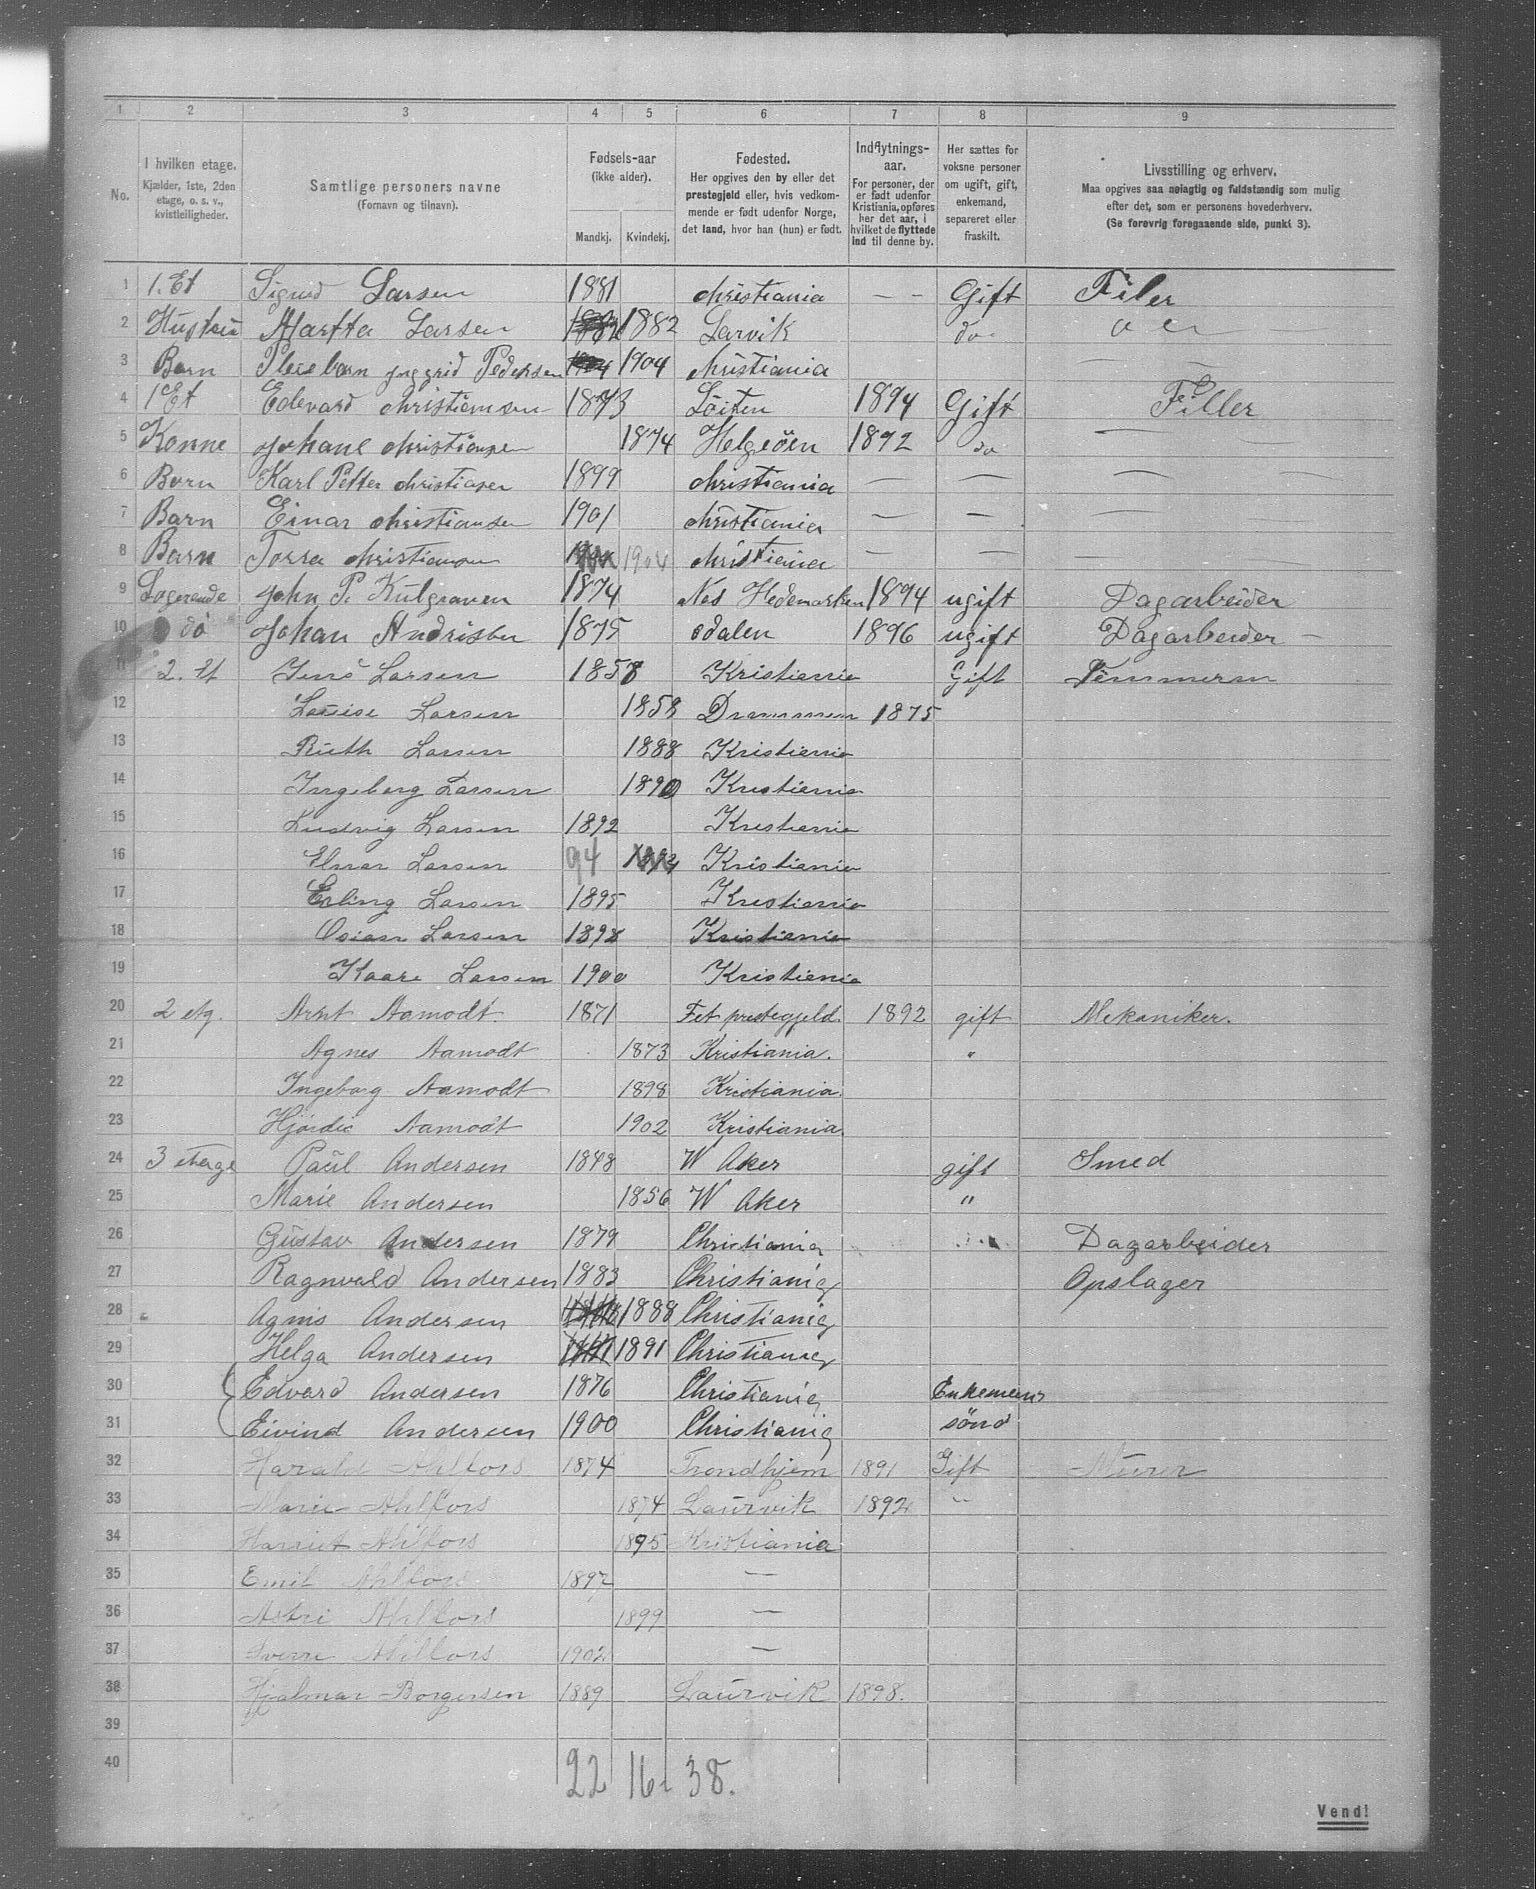 1 2 3 4 5 6 7 8 9
No.
I hvilken etage.
Kjælder, 1ste, 2den
etage, o. s. v.,
kvistleiligheder.
Samtlige personers navne
(Fornavn og tilnavn).
Fødsels-aar
(ikke alder).
Mandkj. Kvindekj.
Fødested.
Her opgives den by eller det
prestegjeld eller, hvis vedkom-
mende er født udenfor Norge,
det land, hvor han (hun) er født.
Indflytnings-
aar.
For personer, der
er født udenfor
Kristiania, opføres
her det aar, i
hvilket de flyttede
ind til denne by.
Her sættes for
voksne personer
om ugift, gift,
enkemand,
separeret eller
fraskilt.
Livsstilling og erhverv.
Maa opgives saa nøiagtig og fuldstændig som mulig
efter det, som er personens hovederhverv.
(Se forøvrig foregaaende side, punkt 3).
1 1. Et Sigurd Larsen 1881 christiania — — Gift Filer
2 Hustru Martha Larsen 1882 Larvik do
3 Barn Pleiebarn Inggrid Pedersen 1904 christiania
4 1 Et Edevard christiansen 1873 Löiten 1894 Gift Filler
5 Konne Johane christiansen 1874 Helgeöen 1892 do —
6 Barn Karl Petter christiansen 1899 christiania — — —
7 Barn Einar christiansen 1901 christiania — — —
8 Barn Torra christiansen 1904 christiania — —
9 Logerende John P. Kulgraven 1874 Nes Hedemarken 1894 ugift Dagarbeider
10 do Johan Andrisen 1875 odalen 1896 ugift Dagarbeider —
11 2. et Jens Larsen 1858 Kristiania Gift
12 Louise Larsen 1858 Drammen 1875
13 Ruth Larsen 1888 Kristiania
14 Ingeborg Larsen 1890 Kristiania
15 Ludvig Larsen 1892 Kristiania
16 Einar Larsen 94 Kristiania
17 Erling Larsen 1895 Kristiania
18 Osian Larsen 1898 Kristiania
19 Kaare Larsen 1900 Kristiania
20 2 etg. Arnt Aamodt 1871 Fet prestegjeld. 1892 gift Mekaniker.
21 Agnes Aamodt 1873 Kristiania. "
22 Ingeborg Aamodt 1898 Kristiania.
23 Hjördis Aamodt 1902 Kristiania.
24 3 etage Paul Andersen 1848 W Aker gift Smed
25 Marie Andersen 1856 W Aker "
26 Gustav Andersen 1879 Christiania Dagarbeider
27 Ragnvald Andersen 1883 Christiania Opslager
28 Agnis Andersen 1888 Christiania
29 Helga Andersen 1891 Christiania
30 Edvard Andersen 1876 Christiania Enkemand
31 Eivind Andersen 1900 Christiania sönd
32 Harald Ahlfors 1874 Trondhjem 1891 Gift Murer
33 Marie Ahlfors 1874 Laurvik 1892 "
34 Harriet Ahlfors 1895 Kristiania
35 Emil Ahlfors 1897 —
36 Astri Ahlfors 1899 —
37 Sverre Ahlfors 1902 —
38 Hjalmar Borgersen 1889 Laurvik 1898.
39
40 22 16 38.
Vend!